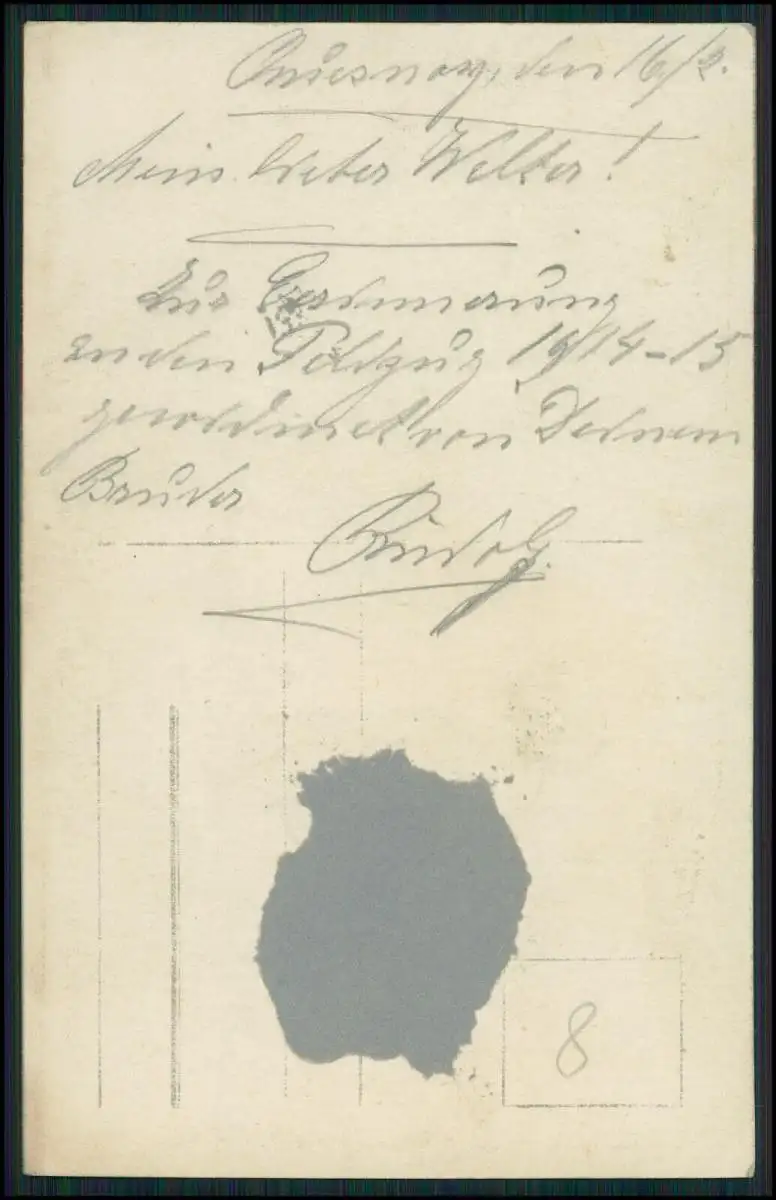 Quesnoy, den 16/2.
Mein lieber Walter!
Zur Erinnerung
an den Feldzug 1914-15
gewidmet von Deinem
Bruder
Rudolf.
8